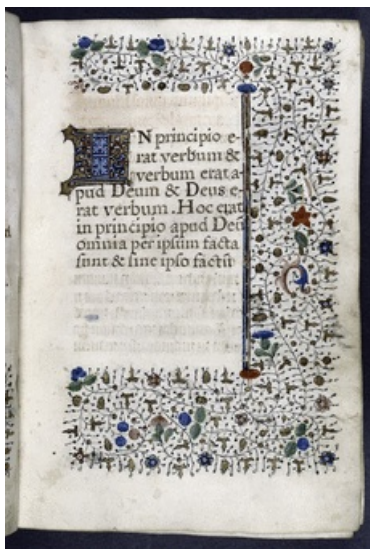 IN principio e-
rat verbum &
verbum erat a-
pud Deum & Deus e-
rat verbum. Hoc erat
in principio apud Deū
omnia per ipsum facta
sunt & sine ipso factū